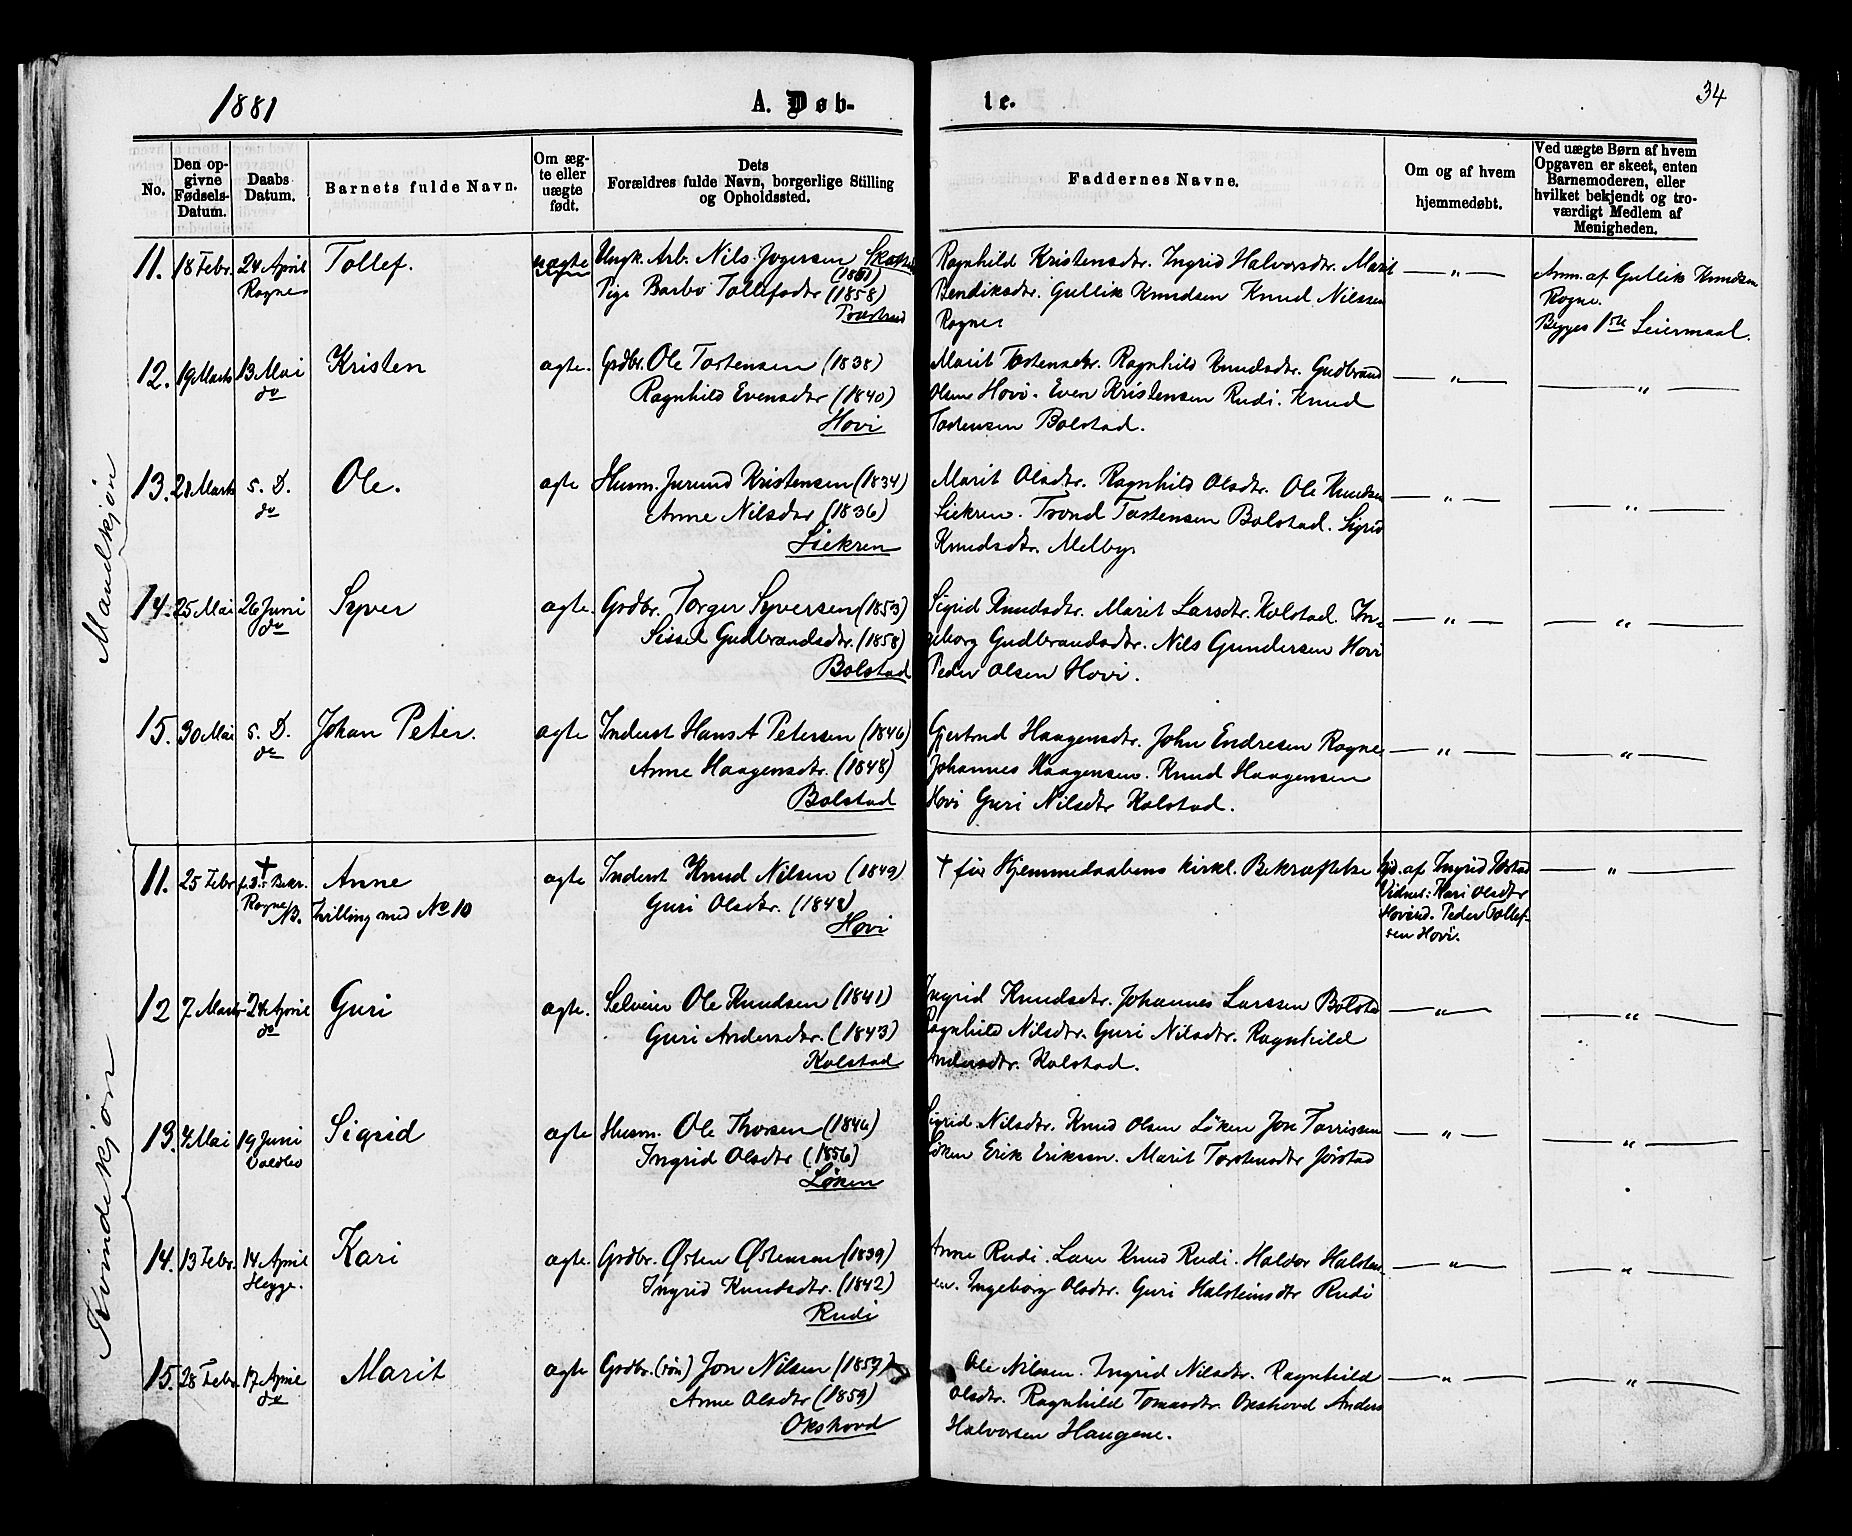 1881
A. Døb-
te.
34
No.
Den op-
givne
Fødsels-
Datum.
Daabs
Datum.
Barnets fulde Navn.
Om æg-
te eller
uægte
født.
Dets
Forældres fulde Navn, borgerlige Stilling
og Opholdssted.
Faddernes Navne.
Om og af hvem
hjemmedøbt.
Ved uægte Børn af hvem
Opgaven er skeet, enten
Barnemoderen, eller
hvilket bekjendt og tro-
værdigt Medlem af
Menigheden.
Mandkjøn
11. 18 Febr. 24 April Tollef. uægte Ungk. Arb. Nils
Rogne (1861)
Pige Barbo Tollefsdtr (1858)
Ragnhild Kristensdtr. Ingrid Halvorsdtr. Marit
Bendiksdtr. Gullik Knudsen Knud Nilssen
Rogne.
— „ —
Anm. af Gullik Knudsen
Rogne.
Begges 1ste Leiermaal.
12. 19 Marts 13 Mai Kristen ægte. Grdbr. Ole Tostensen (1838)
do Ragnhild Evensdtr (1840)
Hovi
Marit Tostensdtr. Ragnhild Knudsdtr. Gudbrand
Olsen Hovi. Even Kristensen Rudi. Knud
Tostensen Bolstad.
— „ — — „ —
13. 21 Marts s. D. Ole. ægte Husm. Jørund Kristensen (1834)
do Anne Nilsdtr (1836)
Liekren
Marit Olsdtr. Ragnhild Olsdtr. Ole Knudsen
Liekren. Trond Tostensen Bolstad. Sigrid
Knudsdtr. Melby.
— „ — — „ —
14. 25 Mai 26 Juni Syver ægte. Grdbr. Torger Syversen (1853)
do Sissel Gudbrandsdtr. (1858)
Bolstad
Sigrid Knudsdtr. Marit Larsdtr. Kolstad. In-
geborg Gudbrandsdtr. Nils Gundersen Hovi
Peder Olsen Hovi.
— „ — — „ —
15. 30 Mai s. D. Johan Peter. ægte Inderst Hans A Petersen (1846)
do Anne Haagensdtr. (1848)
Bolstad
Gjertrud Haagensdtr. John Endresen Rogne
Johannes Haagensen. Knud Haagensen
Hovi Guri Nilsdtr Kolstad.
— „ — — „ —
Kvindekjøn
11. 25 Febr † Anne ægte Inderst Knud Nilsen (1849)
f. D.s Bekr.
Rogne Tvilling med No 10 Guri Olsdtr. (1842)
NB. Hovi
† før Hjemmedaabens kirkl. Bekræftelse
Hjd. af Ingrid
Vidner: Kari Olsdtr
Hovi. Peder Tollef-
sen Hovi.
— „ —
12 7 Marts 24 April Guri ægte. Selveier Ole Knudsen (1841)
do Guri Andersdtr. (1843)
Kolstad
Ingrid Knudsdtr. Johannes Larssen Bolstad
Ragnhild Nilsdtr. Guri Nilsdtr. Ragnhild
Andersdtr. Kolstad.
— „ — — „ —
13. 4 Mai 19 Juni Sigrid ægte Husm. Ole Thorsen (1846)
Volbo Ingrid Olsdtr (1856)
Løken
Sigrid Nilsdtr. Knud Olsen Løken Jon Torrissen
Løken Erik Eriksen. Marit Torstensdtr Jørstad
— „ — — „ —
14. 13 Febr. 14 April Kari ægte. Grdbr. Østen Østensen (1839)
Hegge. Ingrid Knudsdtr. (1842)
Rudi
Anne Rudi. Lars Knud Rudi. Haldor Halsten-
sen. Ingeborg Olsdtr. Guri Halsteinsdtr Rudi
— „ — — „ —
15. 28 Febr. 17 April Marit ægte Grdbr. (søn) Jon Nilsen (1857)
do Anne Olsdtr (1859)
Okshovd
Ole Nilssen. Ingrid Nilsdtr. Ragnhild
Olsdtr. Ragnhild Tomasdtr. Okshovd Anders
Halvorsen Haugene.
— „ — — „ —